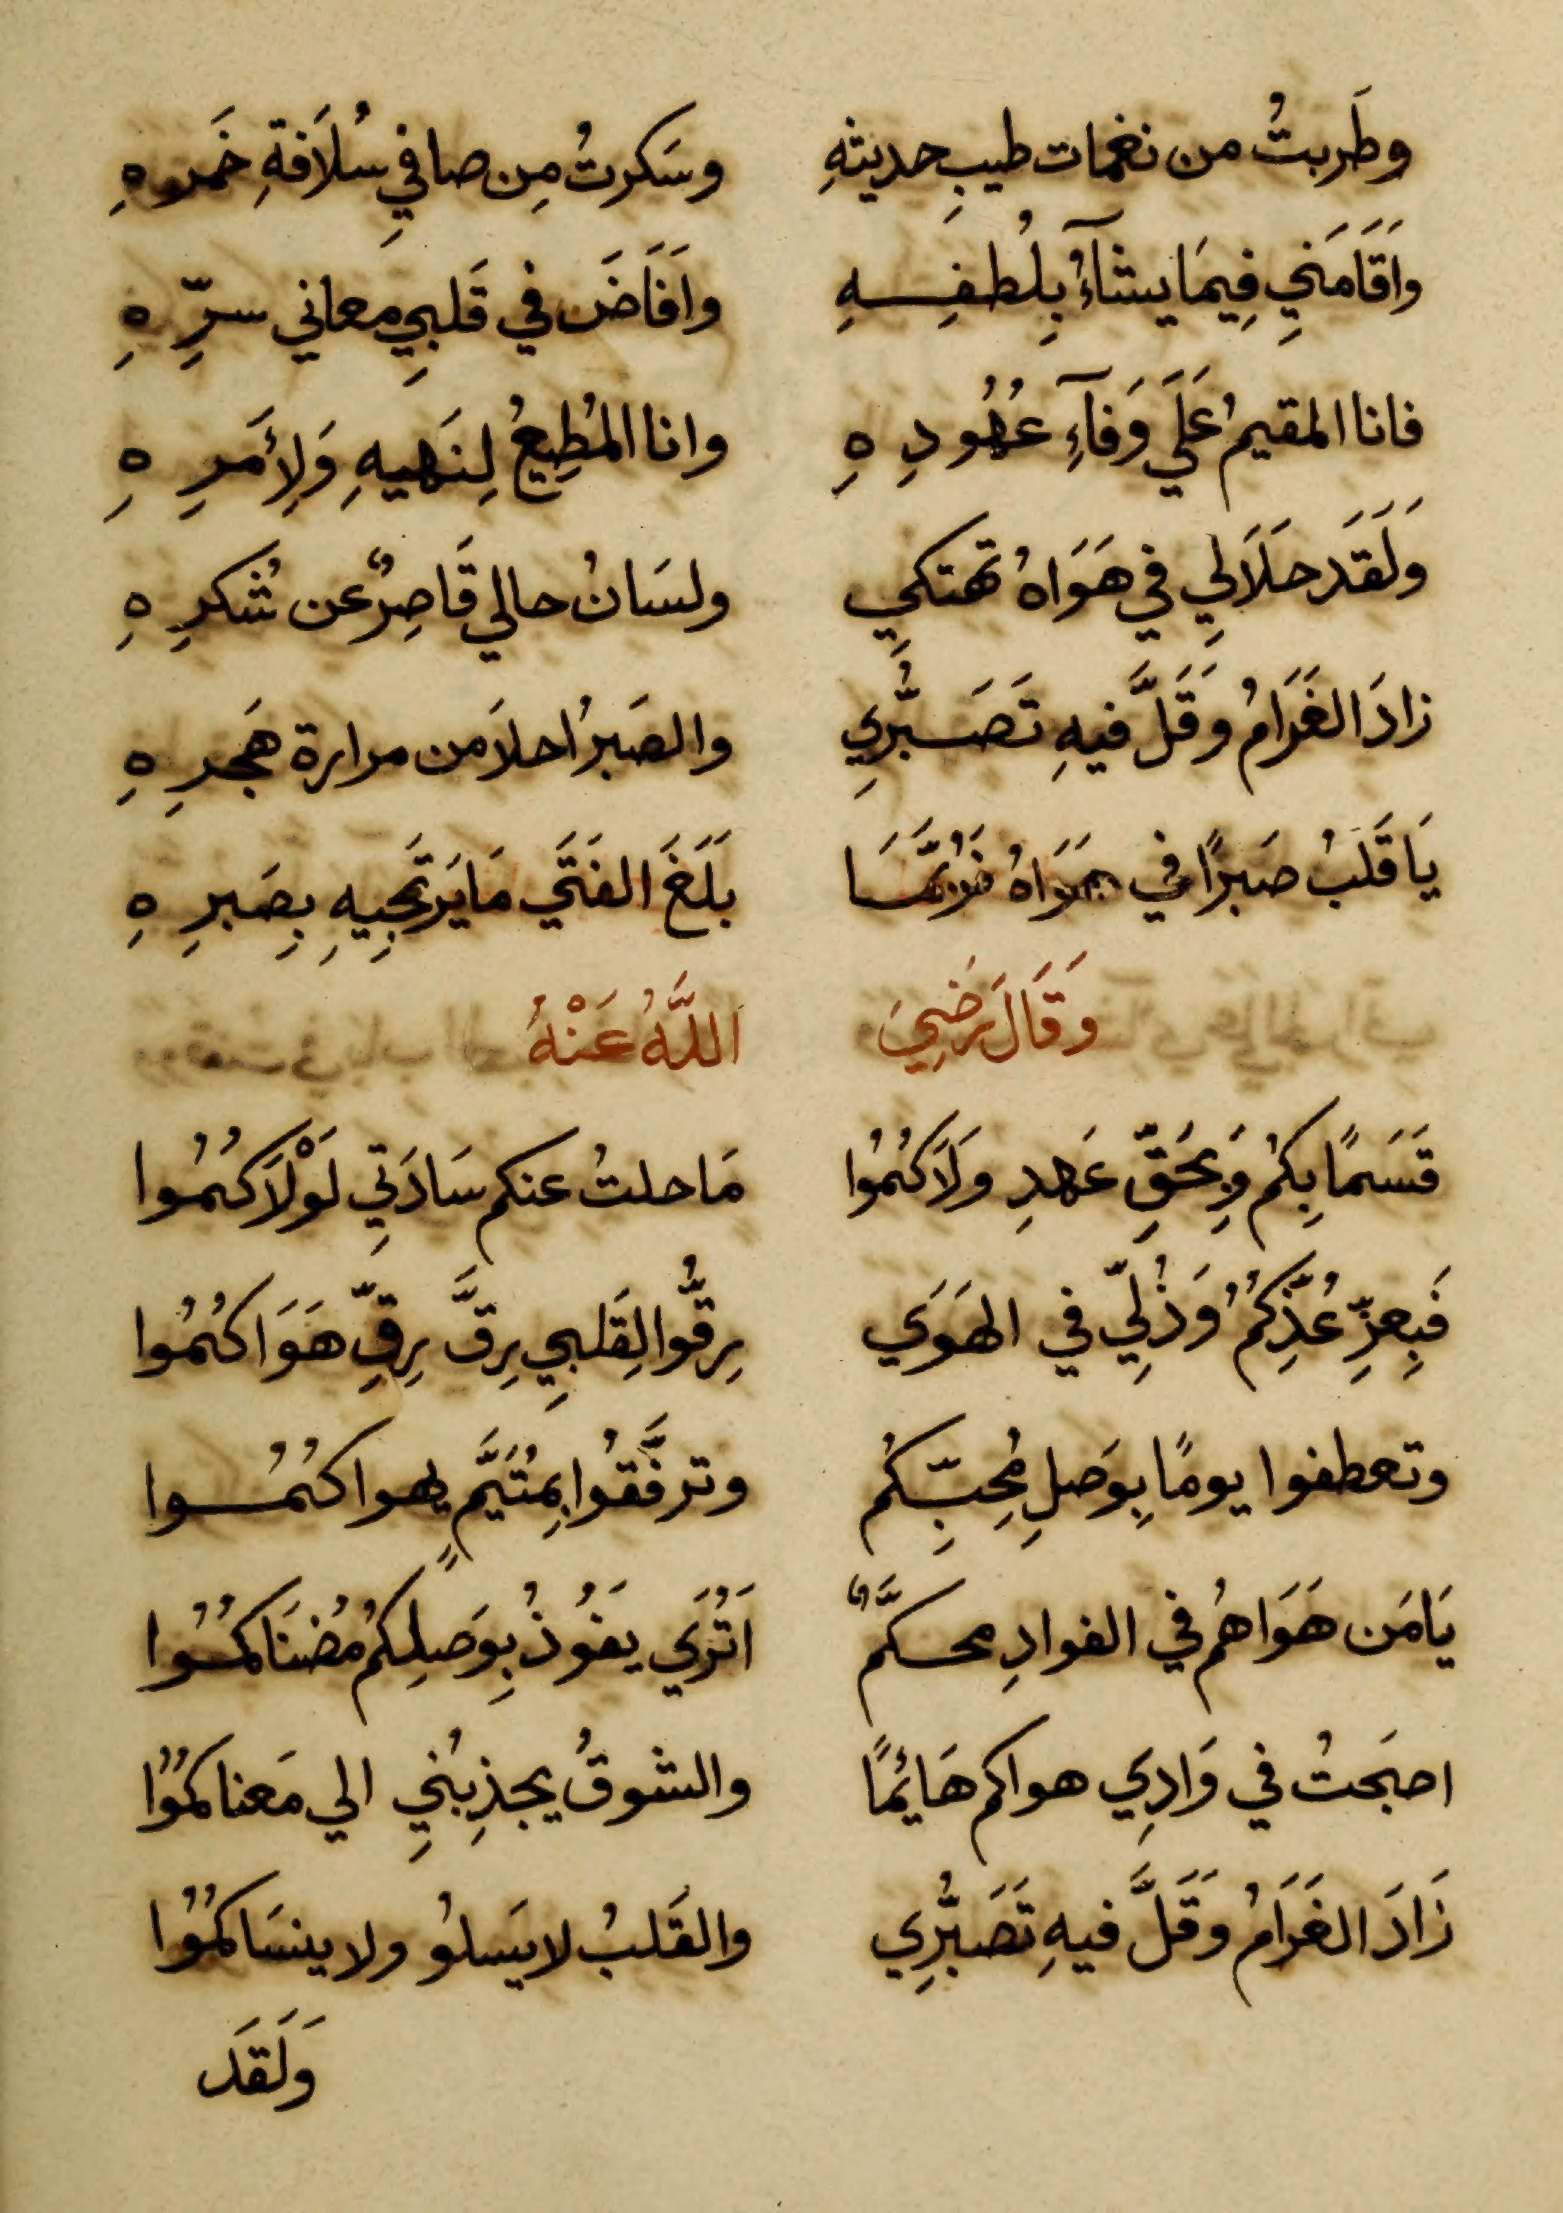 وطَربتُ من نغمات طيبِ حديثهِ وسَكرتُ مِن صافيِ سُلاَفةِ خَمرهِ
واَقَامَنيِ فِيمَا يشآءُ بِلُطفِهِ واَفَاضَ في قَلبيِ معاني سرِّهِ
فانا المقيمُ عَلَي وَفآءِ عُهُودِهِ وانا المُطِيعُ لِنَهيهِ وَلِأَمرِهِ
وَلَقَد حلاَ لِي في هَوَاهُ تهتكيِ ولسَانُ حالي قَاصِرٌ عن شُكرِهِ
زادَ الغَرَامُ وَقَلَّ فيهِ تَصَبُّرِي والصَبرُ احلاَ من مرارة هَجرِهِ
يَا قَلبُ صَبرًا في هَوَاهُ فَرُبَّمَا بَلَغَ الفَتَي مَا يَرتَجِيهِ بِصَبرِهِ
وَقَالَ رَضِيَ اللَّهُ عَنْهُ
قَسَمًا بِكُم وَبِحَقِّ عَهدِ ولَاَكُمُوا مَا حلتُ عنكم سَادَتِي لَوْلَاَكُمُوا
فَبِعزِّ عُذِّكُمُ وَذُلِّي في الهَوَي رِقُّوا لِقَلبيِ رِقَّ رِقِّ هَوَاكُمُوا
وتعطفوا يومًا بِوَصلِ مُحِبِّكُم وترفَّقُوا بِمُتَيَّمٍ يهواكُمُوا
يَا مَن هَوَاهُم في الفوادِ محكَّمٌ اَتُرَي يَفُوذُ بِوَصلِكُم مُضنَاكُمُوا
اصبَحتُ في وَادِي هواكم هَائمًا والشوقُ يجذِبُنيِ الي مَعناكمُوُا
زَادَ الغَرَامُ وَقَلَّ فيهِ تَصَبُّرِي والقَلبُ لا يَسلوُ ولا ينسَاكمُوُا
وَلَقَد